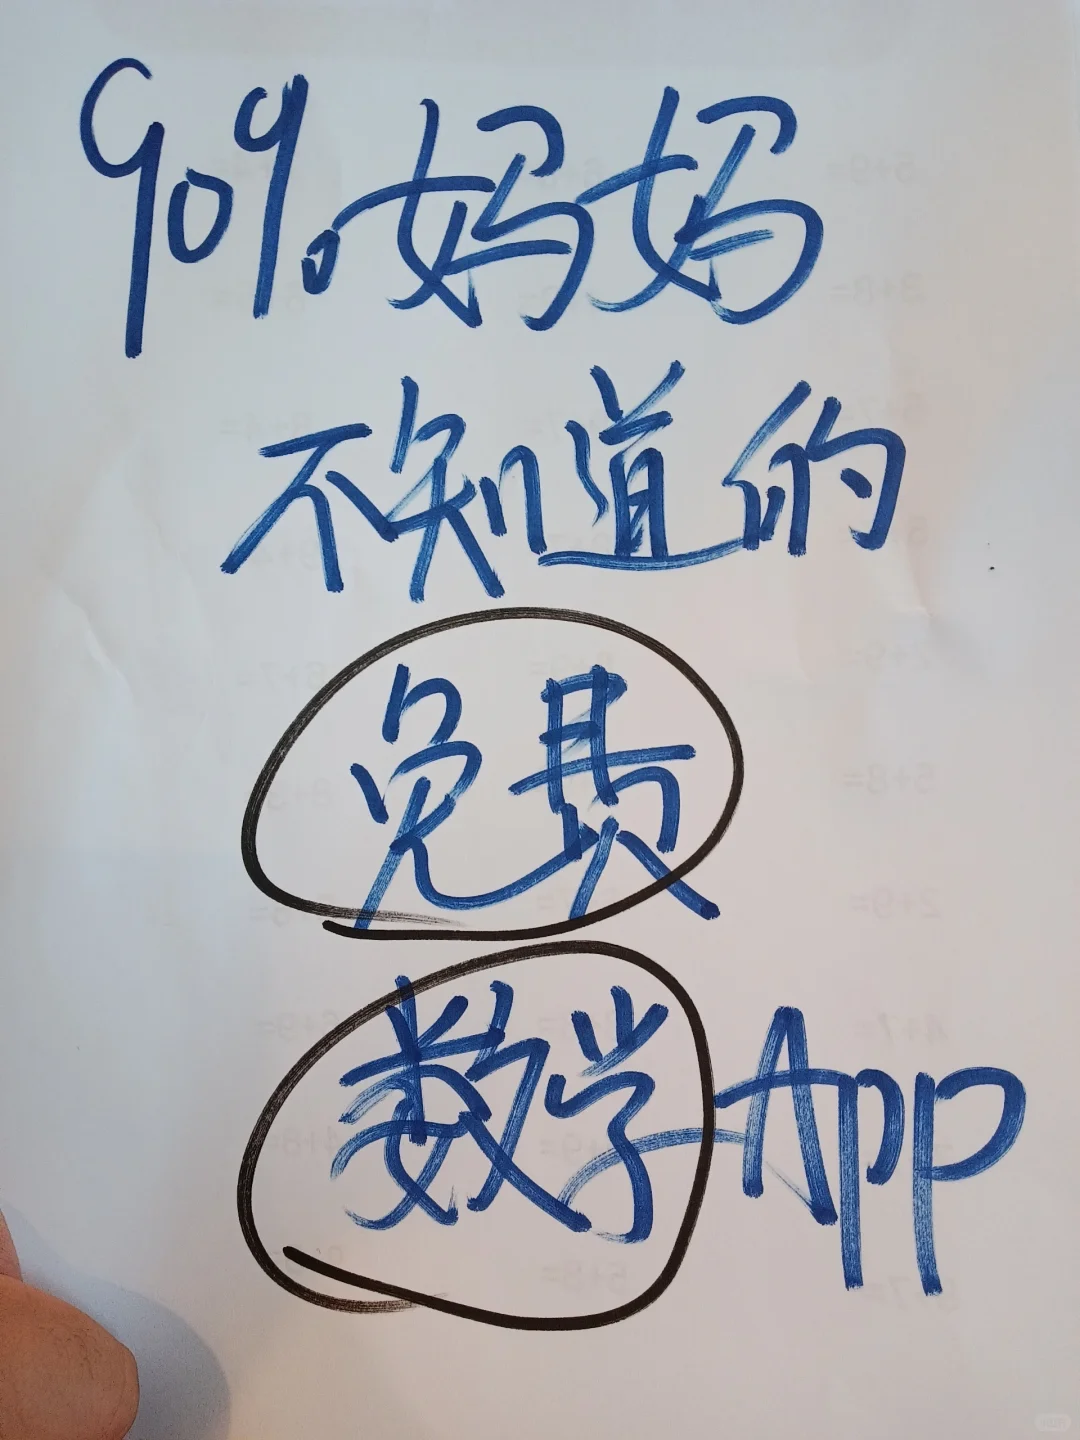 90%妈妈
不知道的
免费
数学App